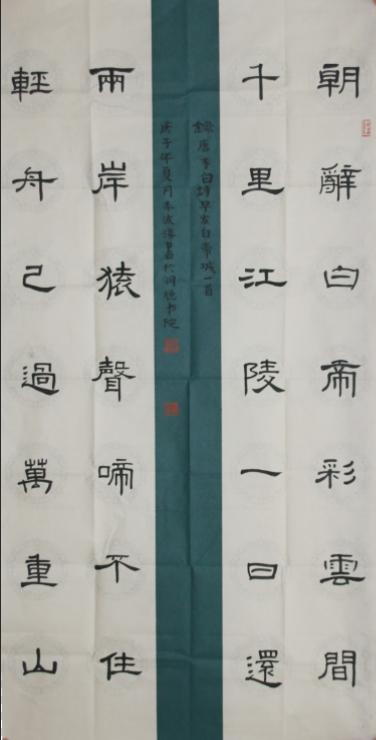 朝辭白帝彩雲間
千里江陵一日還
兩岸猿聲啼不住
輕舟已過萬重山
錄唐李白詩早发白帝城一首
庚子年夏月書於书院